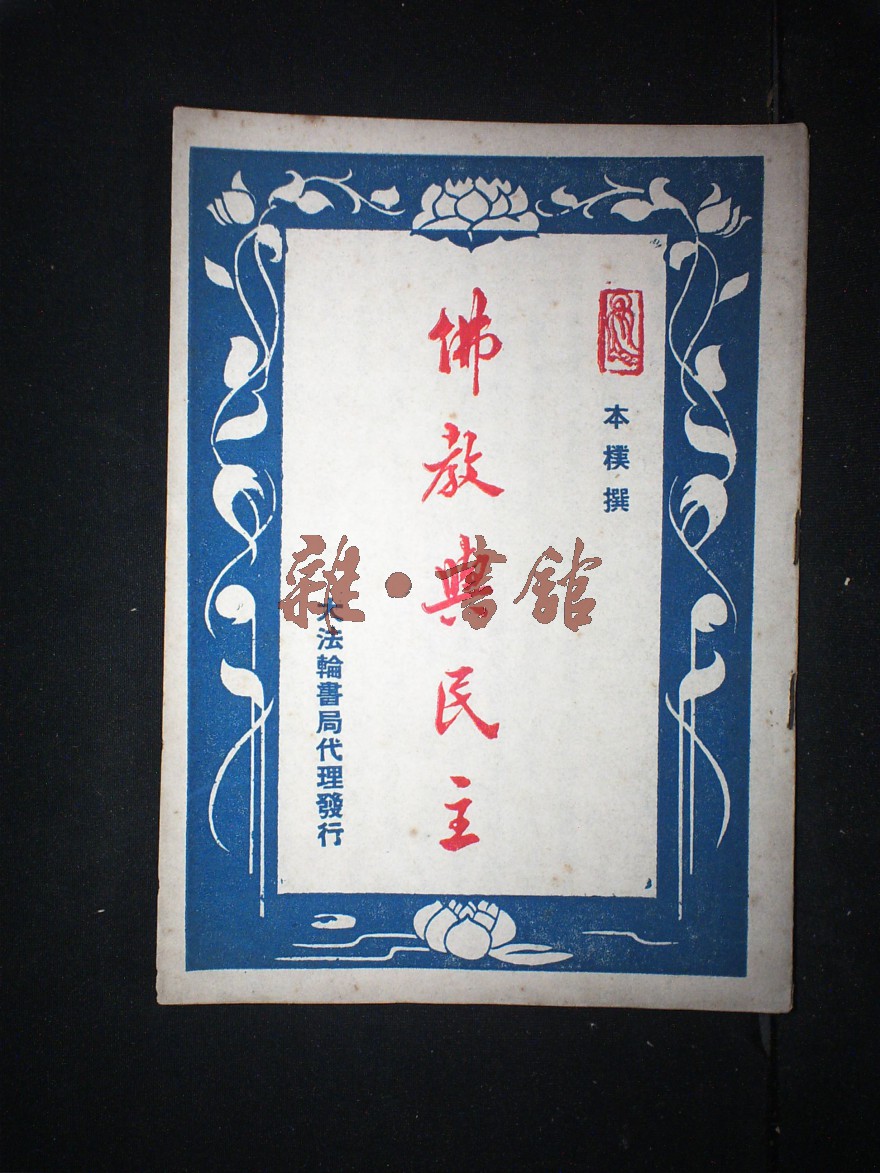 本樸撰
佛教與民主
大法輪書局代理發行
雜·書館